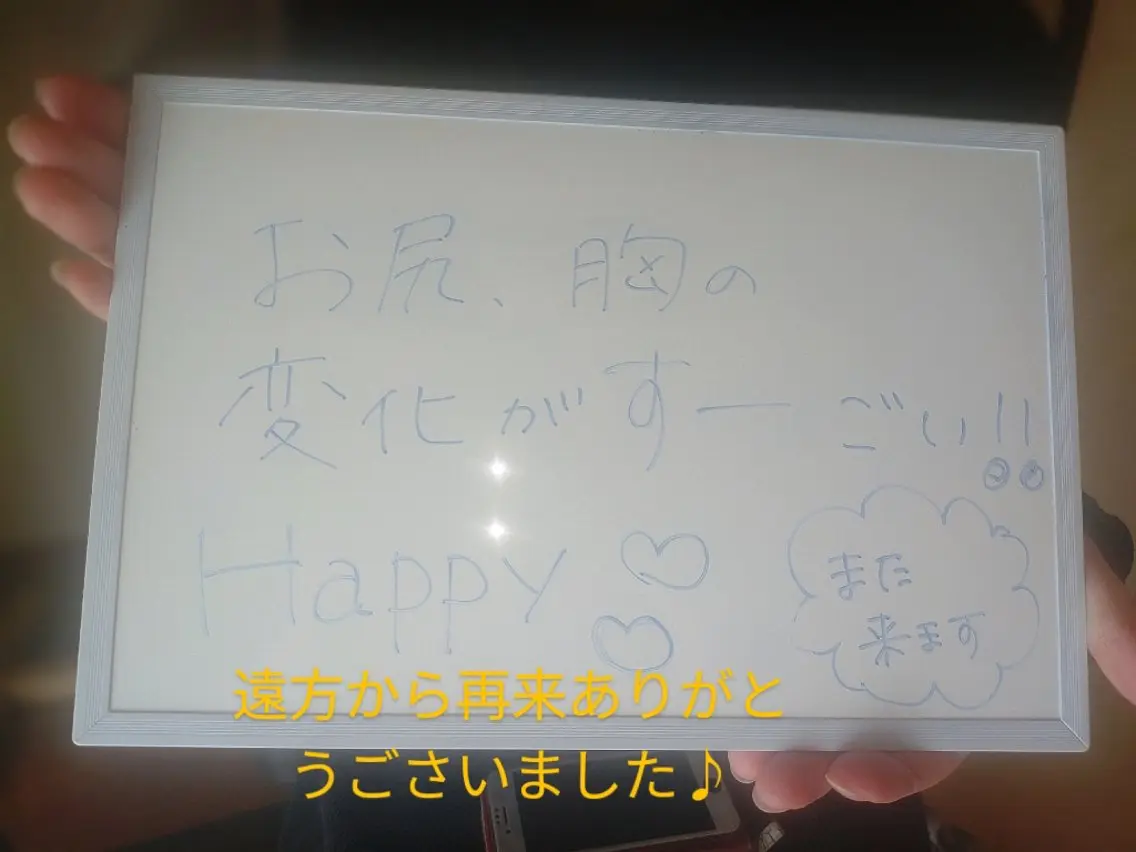 お尻、胸の
変化がすーごい!!
Happy ♡♡
また
来ます
遠方から再来ありがと
うごさいました♪